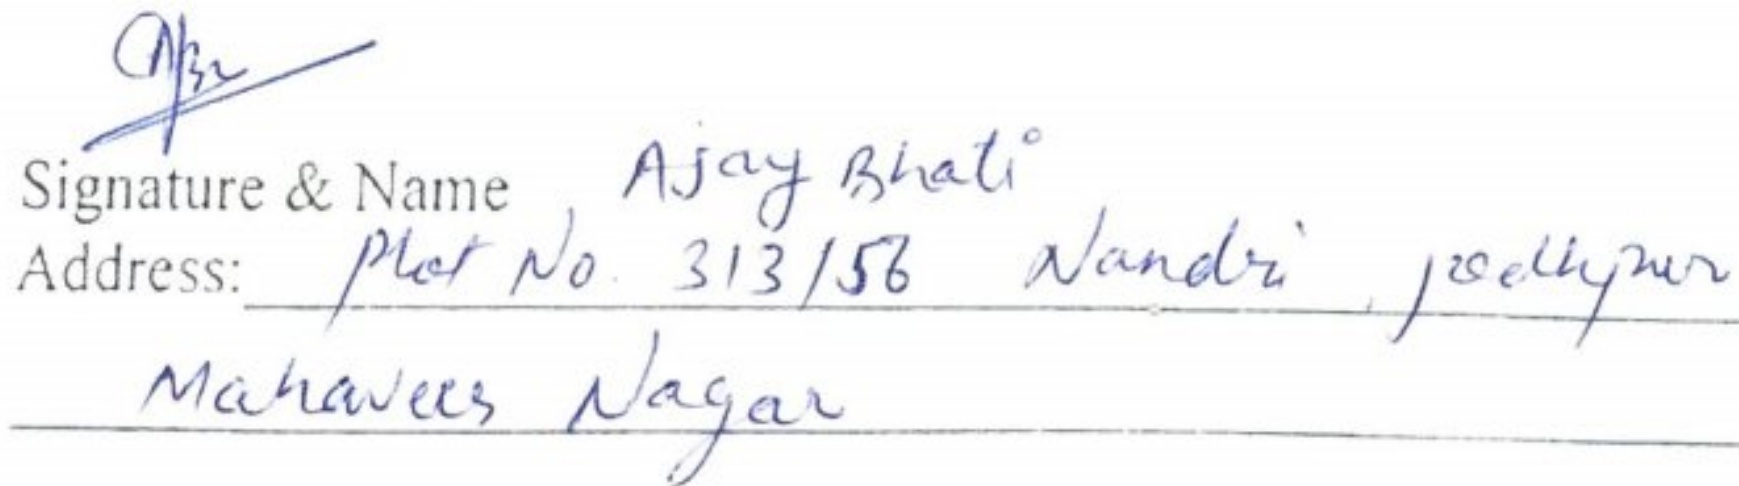 Signature & Name Ajay Bhati
Address: Plot No. 313/56 Nandri, jodhpur
Mahaveer Nagar